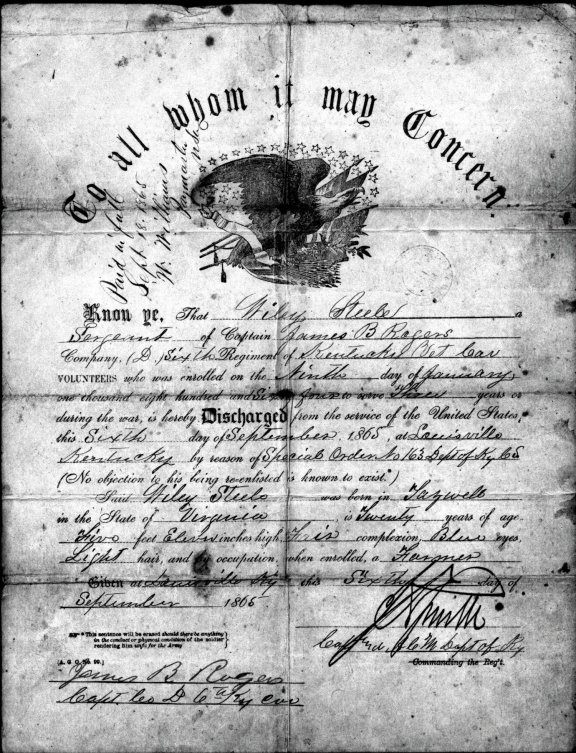 To all whom it may Concern.
Paid in full
Sept 18 1865
Know ye, That Wiley Steele a
Sergeant of Captain James B Rogers
Company, (D,) Sixth Regiment of Kentucky Vet Cav
VOLUNTEERS who was enrolled on the Ninth day of January
one thousand eight hundred and Sixty four to serve Three years or
during the war, is hereby Discharged from the service of the United States,
this Sixth day of September, 1865, at Louisville
Kentucky by reason of Special Order No 163 Dept of Ky 65
(No objection to his being re-enlisted is known to exist.*)
Said Wiley Steele was born in Tazwell
in the State of Virginia, is Twenty years of age,
Five feet Eleven inches high, Fair complexion, Blue eyes,
Light hair, and by occupation, when enrolled, a Farmer
Given at Louisville Ky this Sixth day of
September 1865
* This sentence will be erased should there be anything
in the conduct or physical condition of the soldier
rendering him unfit for the Army.
Smith
Capt C M Dept of Ky
Commanding the Reg't.
[A. G. O. No. 99.]
James B. Rogers
Capt. Co D 6th Ky Cav